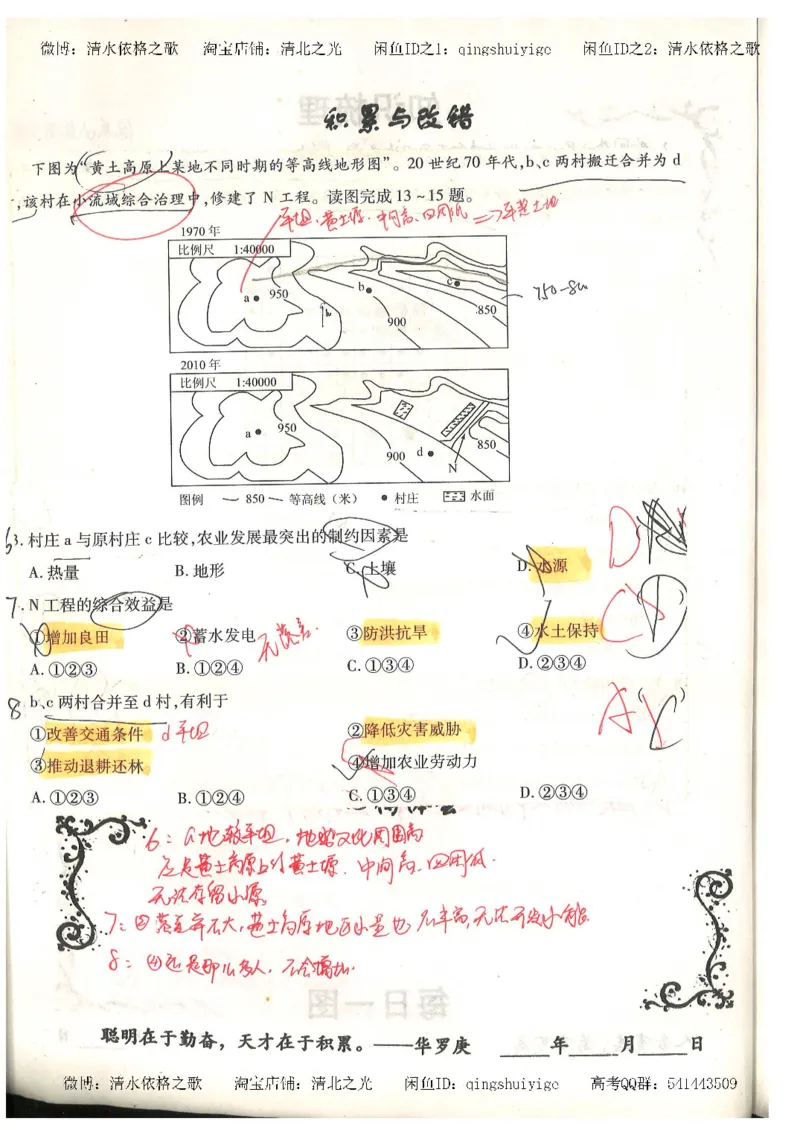 微博：清水依格之歌 淘宝店铺：清北之光 闲鱼ID之1：qingshuiyige 闲鱼ID之2：清水依格之歌
积累与改错
下图为“黄土高原上某地不同时期的等高线地形图”。20世纪70年代,b、c两村搬迁合并为d
,该村在小流域综合治理中,修建了N工程。读图完成13~15题。
平坦、黄土塬、中间高、四周低 =>
1970年
比例尺 1:40000
a 950
b
c
850
900
750-800
2010年
比例尺 1:40000
a 950
900 d
850
N
图例 —850— 等高线（米） ●村庄 水面
3. 村庄a与原村庄c比较,农业发展最突出的制约因素是
D
A. 热量 B. 地形 C. 土壤 D. 水源
7. N工程的综合效益是
C
①增加良田 ②蓄水发电 无落差 ③防洪抗旱 ④水土保持
A. ①②③ B. ①②④ C. ①③④ D. ②③④
8 b、c两村合并至d村,有利于
A
①改善交通条件 d平坦 ②降低灾害威胁
③推动退耕还林 ④增加农业劳动力
A. ①②③ B. ①②④ C. ①③④ D. ②③④
6：a地较平坦，地势又比周围高
应是黄土高原上的黄土塬．中间高．四周低．
无法存留水源
7：②落差并不大，黄土高原地区水量也不丰富,无法开发水能
8：④还是那么多人，不会增加．
每日一图
聪明在于勤奋，天才在于积累。——华罗庚 ____年____月____日
微博：清水依格之歌 淘宝店铺：清北之光 闲鱼ID：qingshuiyige 高考QQ群：541443509